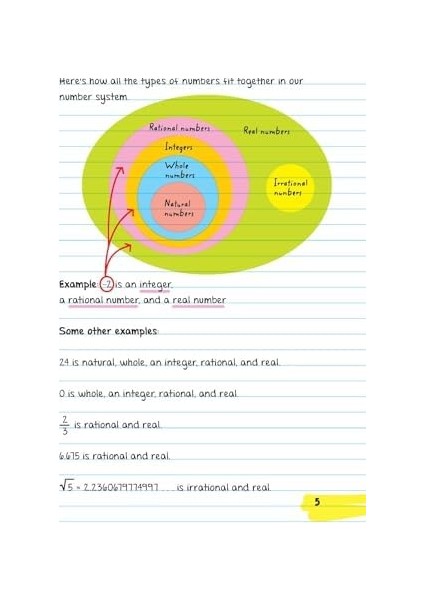 Here's how all the types of numbers fit together in our
number system.
Rational numbers
Real numbers
Integers
Whole
numbers
Irrational
numbers
Natural
numbers
Example: -2 is an integer,
a rational number, and a real number
Some other examples:
24 is natural, whole, an integer, rational, and real.
0 is whole, an integer, rational, and real.
2/3 is rational and real.
6.675 is rational and real.
√5 = 2.2360679774997... is irrational and real.
5